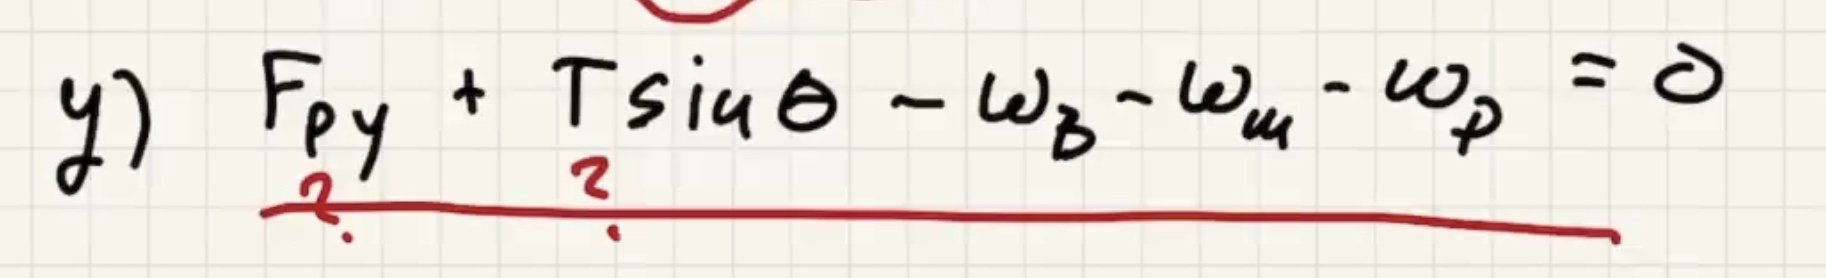 y) Fpy + T sin θ - ωB - ωm - ωp = 0
? ?